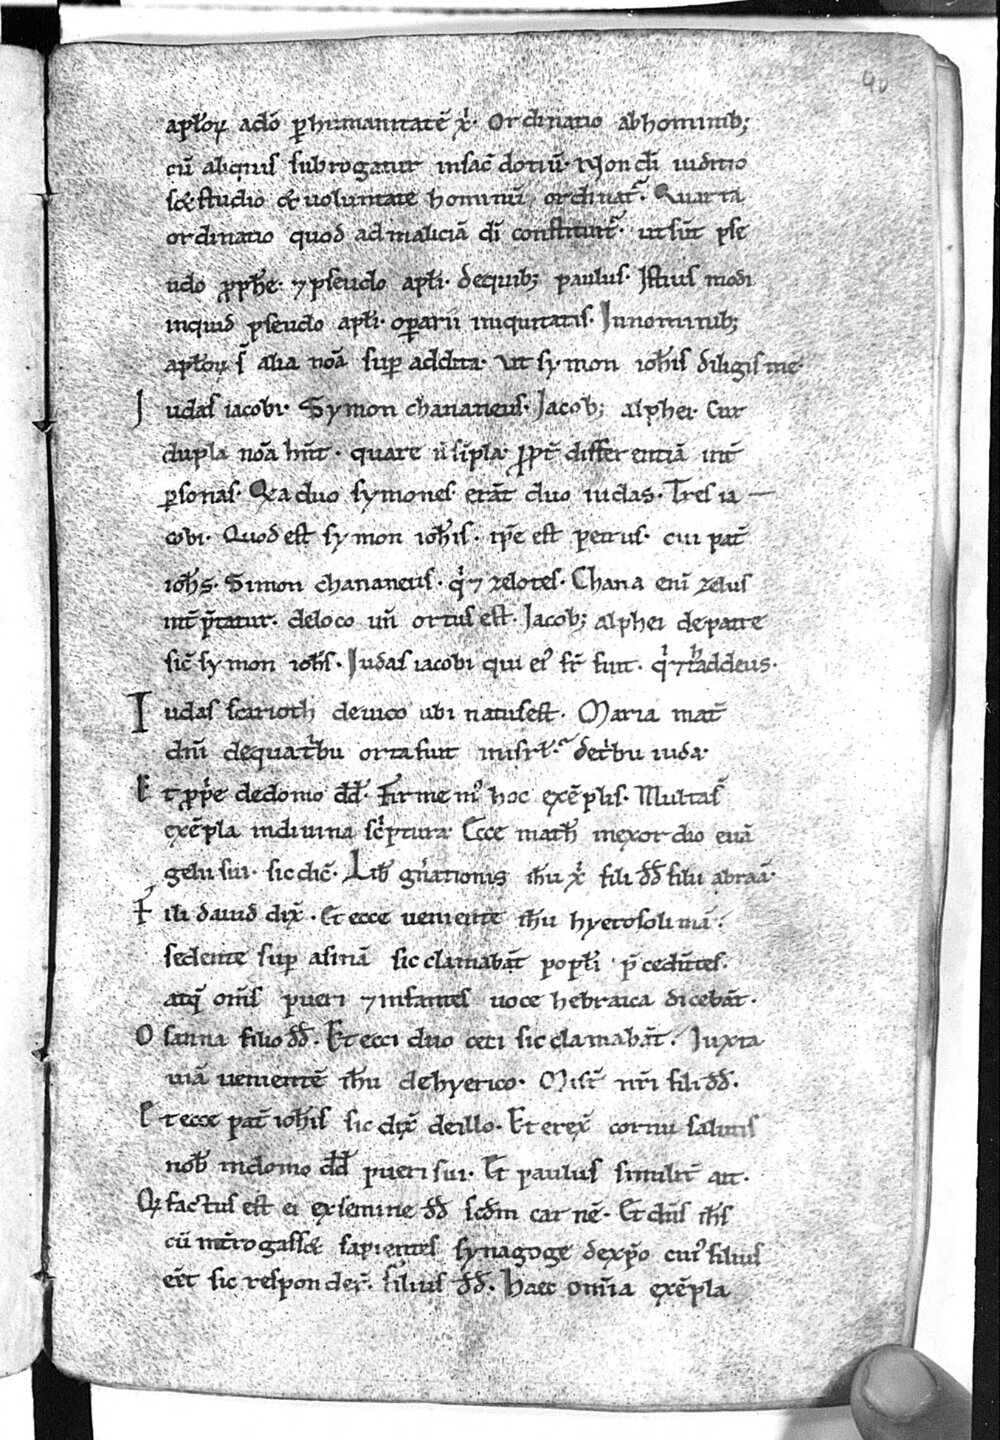 40
apłoꝝ a dō ꝑ humanitatē xp̄i. Ordinatio ab hominib;
cū aliquis subrogatur in sac̄dotiū. Non dī iuditio
s; studio & uoluntate hominū ordinat̄. Quarta
ordinatio quod ad maliciā dī constituit̄. ut sūt pse
udo ꝓph̄e. ⁊ pseudo apłi. de quib; paulus. Istius modi
inquid pseudo apłi. oꝑarii iniquitatis. In nominib;
apłoꝝ s̄ alia noā suꝑ addita. Ut symon ioh̄is diligis me.
Iudas iacobi. Symon chananeus. Jacob; alphei. Cur
dupla noā hn̄t. quare ñ simpla. ꝓpt̄ differentiā int̄
ꝑsonas. Q̄a duo symones erāt duo iudas. Tres ia
cobi. Quod est symon ioh̄is. ip̄e est petrus. cui pat̄
ioh̄s. Simon chananeus. q̇ ⁊ zelotes. Chana eni zelus
int̄p̄tatur. de loco uñ ortus est. Jacob; alphei de patre
sic̄ symon ioh̄s. Iudas iacobi qui ei᾽ fr̄ fuit. q̇ ⁊ thaddeus.
Iudas scarioth de uico ubi natus est. Maria mat̄
dn̄i de qua ṫbu orta fuit de ṫbu iuda.
Et ꝓp̄e de domo dd̄. Firmem᾽ hoc exēplis. Multas
exēpla in diuina sċptura. Ecce math̄ in exordio euā
gelii sui. sic dic̄. Lib̄ gn̄ationis ih̄u xp̄i fili dd̄ filii abraā.
Fili dauid dix̄. Et ecce ueniente ih̄u hyerosolimā.
sedente suꝑ asinā sic clamabāt popłi p̄cedētes.
atq̄ om̄s pueri ⁊ infantes uoce hebraica dicebāt.
Osanna filio dd̄. Et ecci duo ceci sic clamabāt. Juxta
uiā uenientē ih̄u de hyerico. Misr̄ nr̄i fili dd̄.
Et ecce pat̄ ioh̄is sic dix̄ de illo. Et erex̄ cornu salutis
nob̄ in domo dd̄ pueri sui. Et paulus similit̄ ait.
Qꝫ factus est ei ex semine dd̄ scd̄m carnē. Et dn̄s ih̄s
cū int̄rogass& sapientes synagoge de xp̄o cui᾽ filius
eēt sic respondeŕ. filius dd̄. Haec om̄ia exēpla